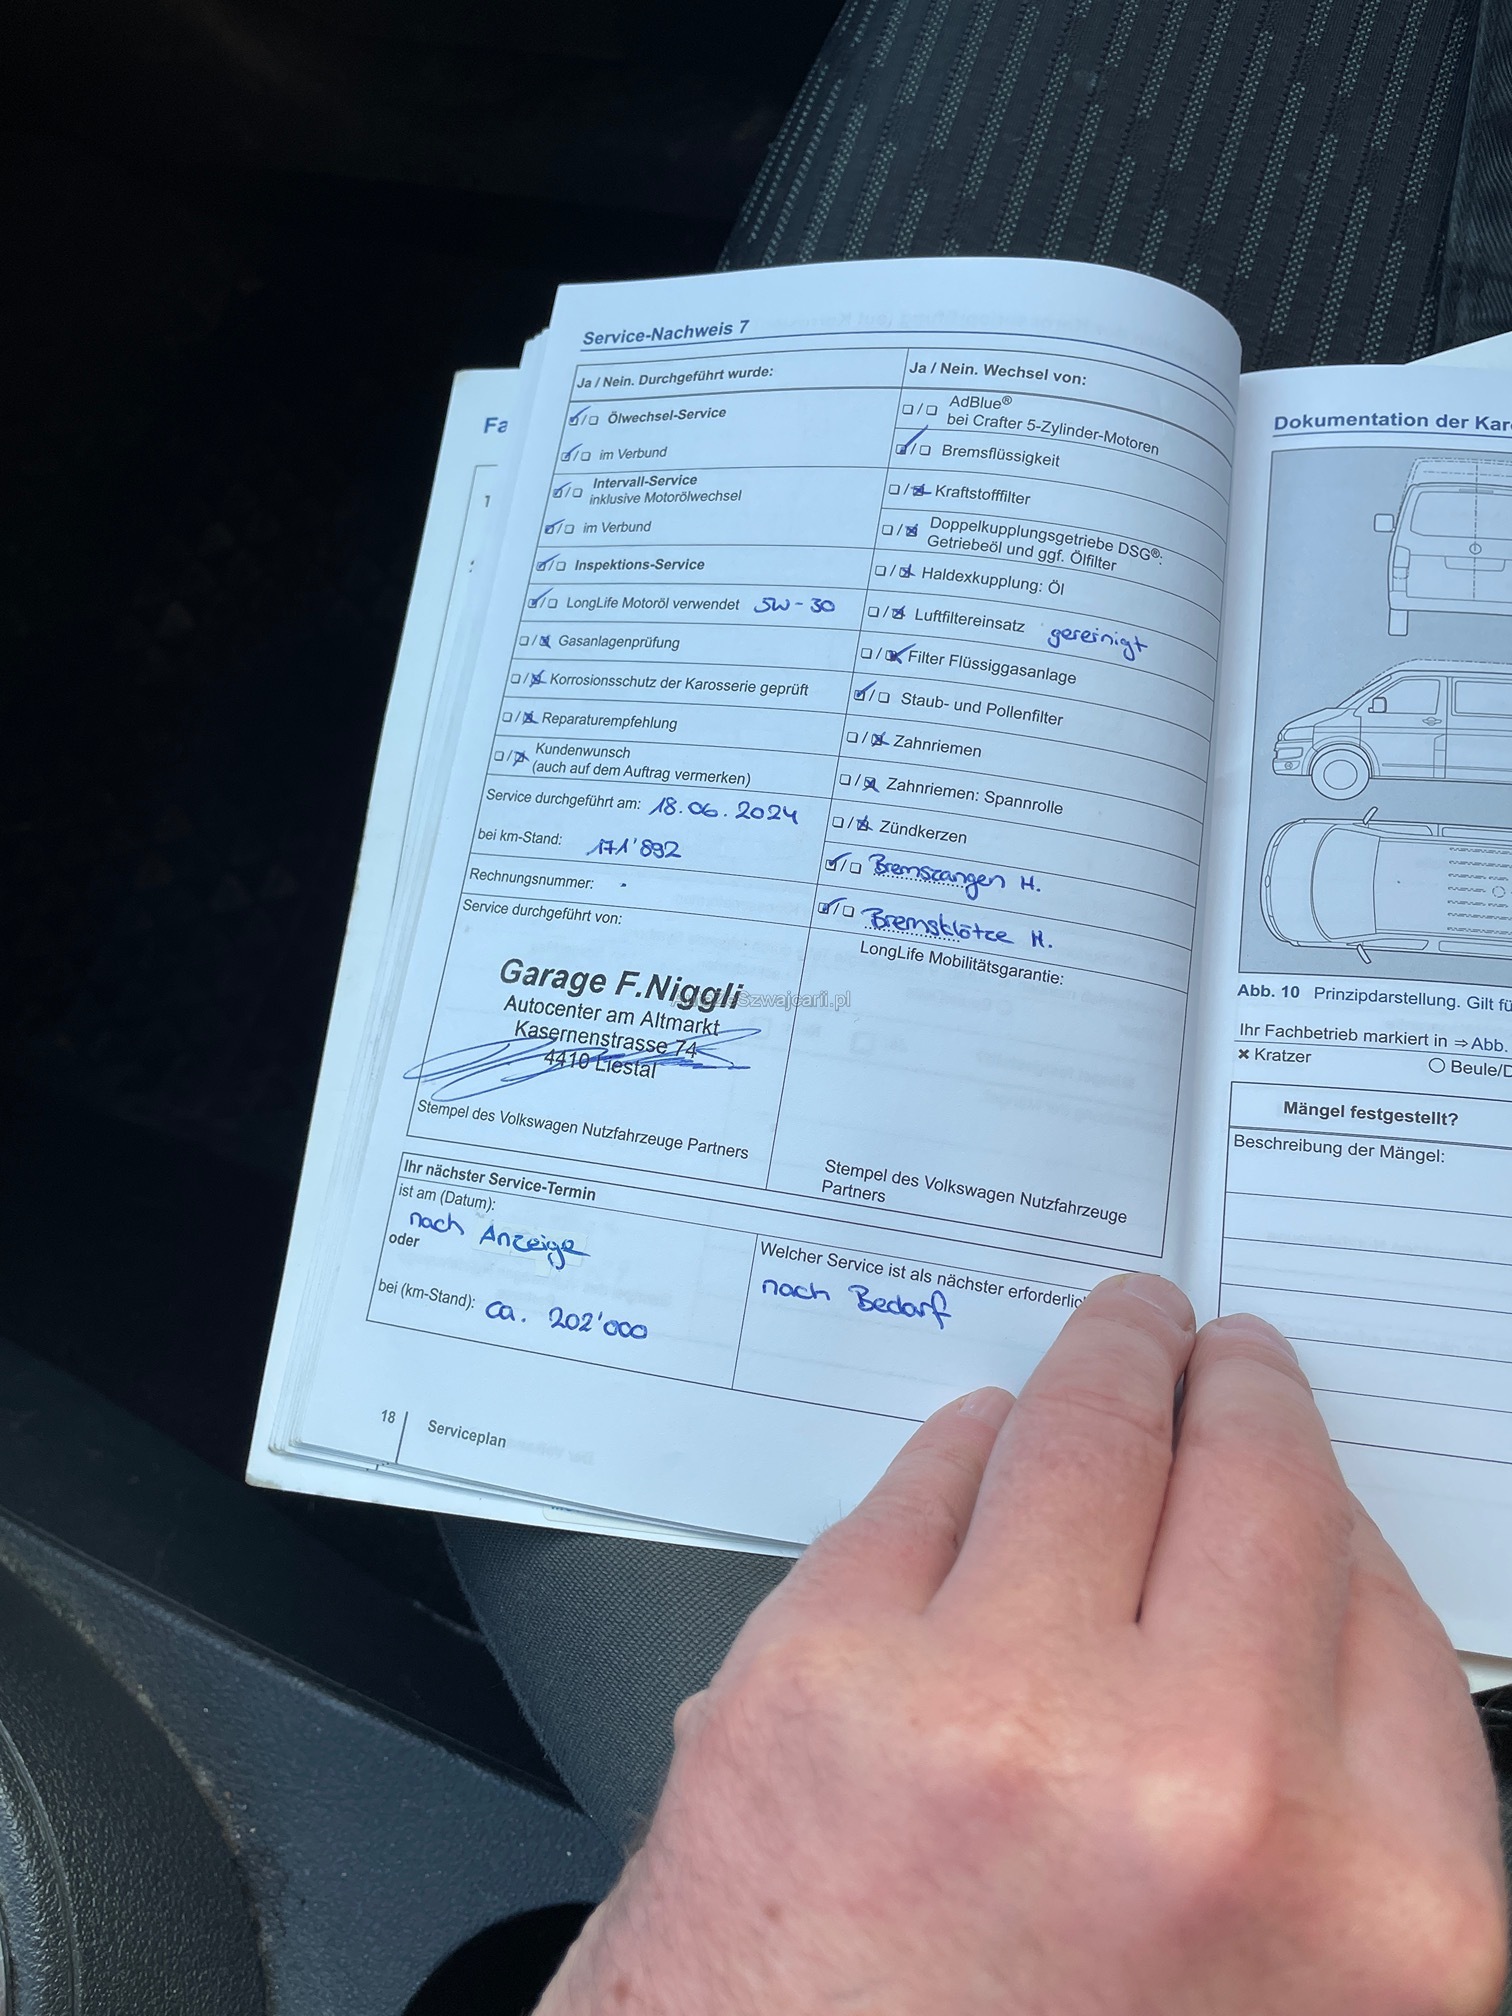 Service-Nachweis 7
Ja / Nein. Durchgeführt wurde:
Ölwechsel-Service
im Verbund
Intervall-Service
inklusive Motorölwechsel
im Verbund
Inspektions-Service
LongLife Motoröl verwendet 5W-30
Gasanlagenprüfung
Korrosionsschutz der Karosserie geprüft
Reparaturempfehlung
Kundenwunsch
(auch auf dem Auftrag vermerken)
Service durchgeführt am: 18.06.2024
bei km-Stand: 171'892
Rechnungsnummer:
Service durchgeführt von:
Garage F.Niggli
Autocenter am Altmarkt
Kasernenstrasse 74
4410 Liestal
Stempel des Volkswagen Nutzfahrzeuge Partners
Ja / Nein. Wechsel von:
AdBlue®
bei Crafter 5-Zylinder-Motoren
Bremsflüssigkeit
Kraftstofffilter
Doppelkupplungsgetriebe DSG®:
Getriebeöl und ggf. Ölfilter
Haldexkupplung: Öl
Luftfiltereinsatz gereinigt
Filter Flüssiggasanlage
Staub- und Pollenfilter
Zahnriemen
Zahnriemen: Spannrolle
Zündkerzen
Bremszangen H.
Bremsklötze H.
LongLife Mobilitätsgarantie:
Stempel des Volkswagen Nutzfahrzeuge
Partners
Ihr nächster Service-Termin
ist am (Datum):
nach Anzeige
oder
bei (km-Stand): ca. 202'000
Welcher Service ist als nächster erforderlic
nach Bedarf
18 Serviceplan
Fa
1
Dokumentation der Kar
Abb. 10 Prinzipdarstellung. Gilt fü
Ihr Fachbetrieb markiert in ⇒ Abb.
✖ Kratzer
Beule/D
Mängel festgestellt?
Beschreibung der Mängel: